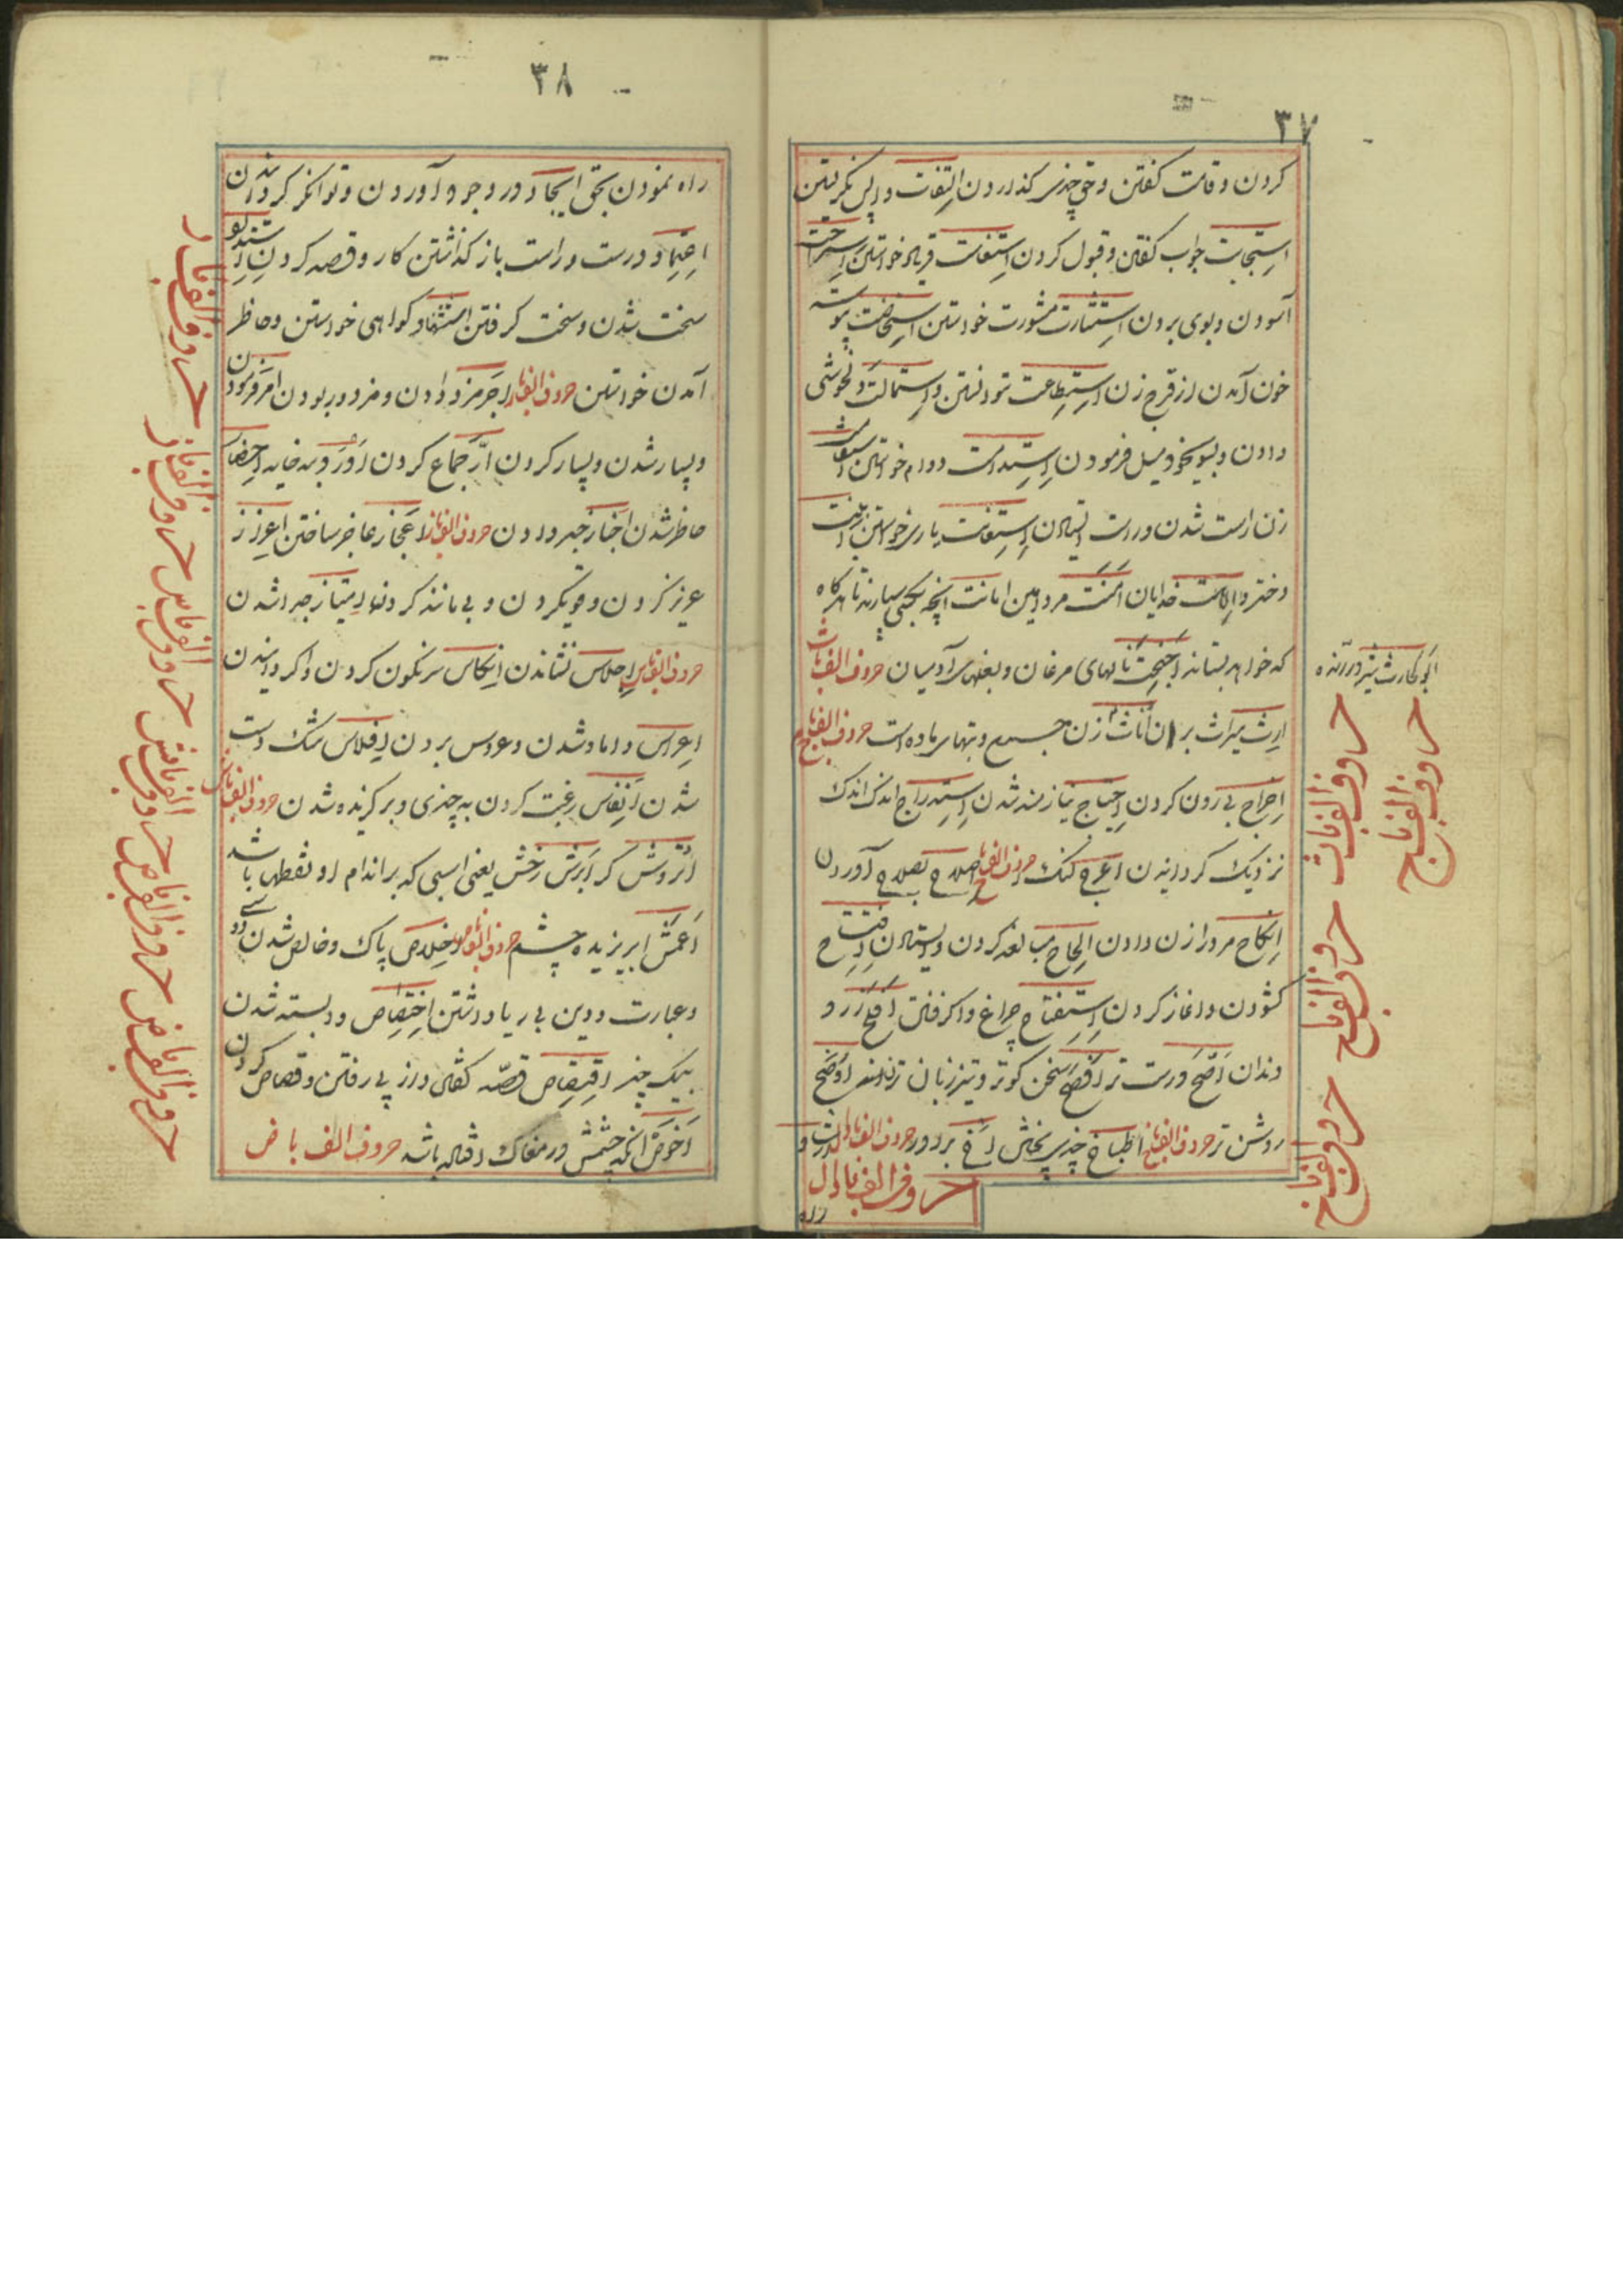 ۳۷
کردن و قامت کفتن و حق چیزی کذاردن التفات واپس نکریستن
استجابت جواب کفتن و قبول کردن استغاثت فریاد خواستن استراحت
آسودن و بوی بردن استشارت مشورت خواستن استحاضت پیوسته
خون آمدن از فرج زن استطاعت توانستن و استمالت دلخوشی
دادن و بسوی خود میل فرمودن استدامت دوام خواستن استقامت
راست شدن و راست ایستادن استعانت یاری خواستن ابنت
دختر و الاهت خدایان امنت مرد امین امانت آنچه بکسی سپارند تا هرکاه
که خواهد بستاند اجنحت بالهای مرغان و بغلهای آدمیان حروف الف با ث
ارث میراث بردن اناث زن جمع و بتهای ماده است حروف الف با ج
اخراج بیرون کردن احتیاج نیازمند شدن استدراج اندک اندک
نزدیک کردانیدن اعرج لنک حروف الف با ح اصلاح بصلاح آوردن
انکاح مرد را زن دادن الحاح مبالغه کردن و ایستادن افتتاح
کشودن و آغاز کردن استفتاح چراغ واکرفتن اقلح زرد
دندان اصح درست تر افصح سخن کوتر و تیز زبان تر اوضح
روشن تر حروف الف با خ اطباخ چیزی پختن اخ برادر حروف الف با د
حروف الف با دال
راه
ابو الحارث شیر درنده
حروف الف با ث
حروف الف با ج
حروف الف با ح
حروف الف با خ
۳۸
راه نمودن بحق ایجاد در وجود آوردن و توانکر کردانیدن
اعتماد درست و راست باز کذاشتن کار و قصد کردن اشتداد
سخت شدن و سخت کرفتن استشهاد کواهی خواستن و حاظر
آمدن خواستن حروف الف با ر اجر مزد دادن و مزدور بودن امر فرمودن
و بسیار شدن و بسیار کردن احضار
حاظر شدن اخبار خبر دادن حروف الف با ز اعجاز عاجز ساختن اعزاز
عزیز کردن و قوی کردن و بی مانند کردن امتیاز جدا شدن
حروف الف با س اجلاس نشاندن انکاس سرنکون کردن واکردانیدن
اعراس داماد شدن و عروس بردن افلاس تنک دست
شدن انفاس رغبت کردن به چیزی و برکزیده شدن حروف الف با ش
اطروش کر ابرش رخش یعنی اسبی که بر اندام او نقطها باشد
اعمش آبریزیده چشم حروف الف با ص اخلاص پاک و خالص شدن
و عبارت و دین بی ریا داشتن اختصاص وابسته شدن
بیک چیز اقتصاص قصّه کفتن و از پی رفتن و قصاص کردن
اخوص آنکه چشمش در مغاک افتاده باشد حروف الف با ض
حروف الف با ر
حروف الف با ز
حروف الف با س
حروف الف با ش
حروف الف با ص
حروف الف با ض